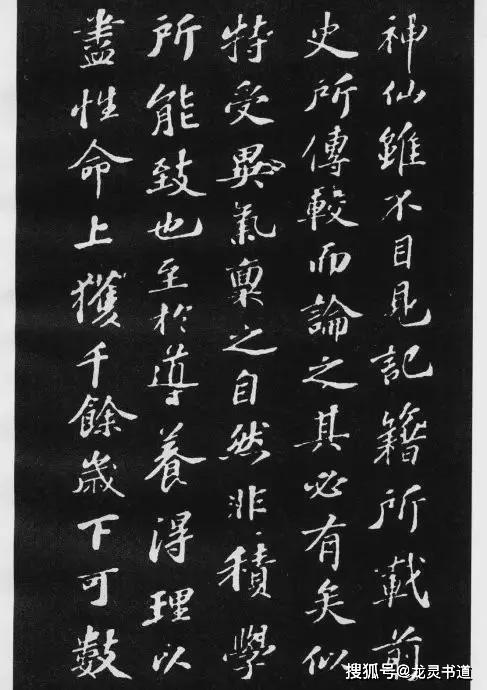 神仙雖不目見記籍所載前
史所傳較而論之其必有矣似
特受異氣稟之自然非積學
所能致也至於導養得理以
盡性命上獲千餘歲下可數
搜狐号@龙灵书道